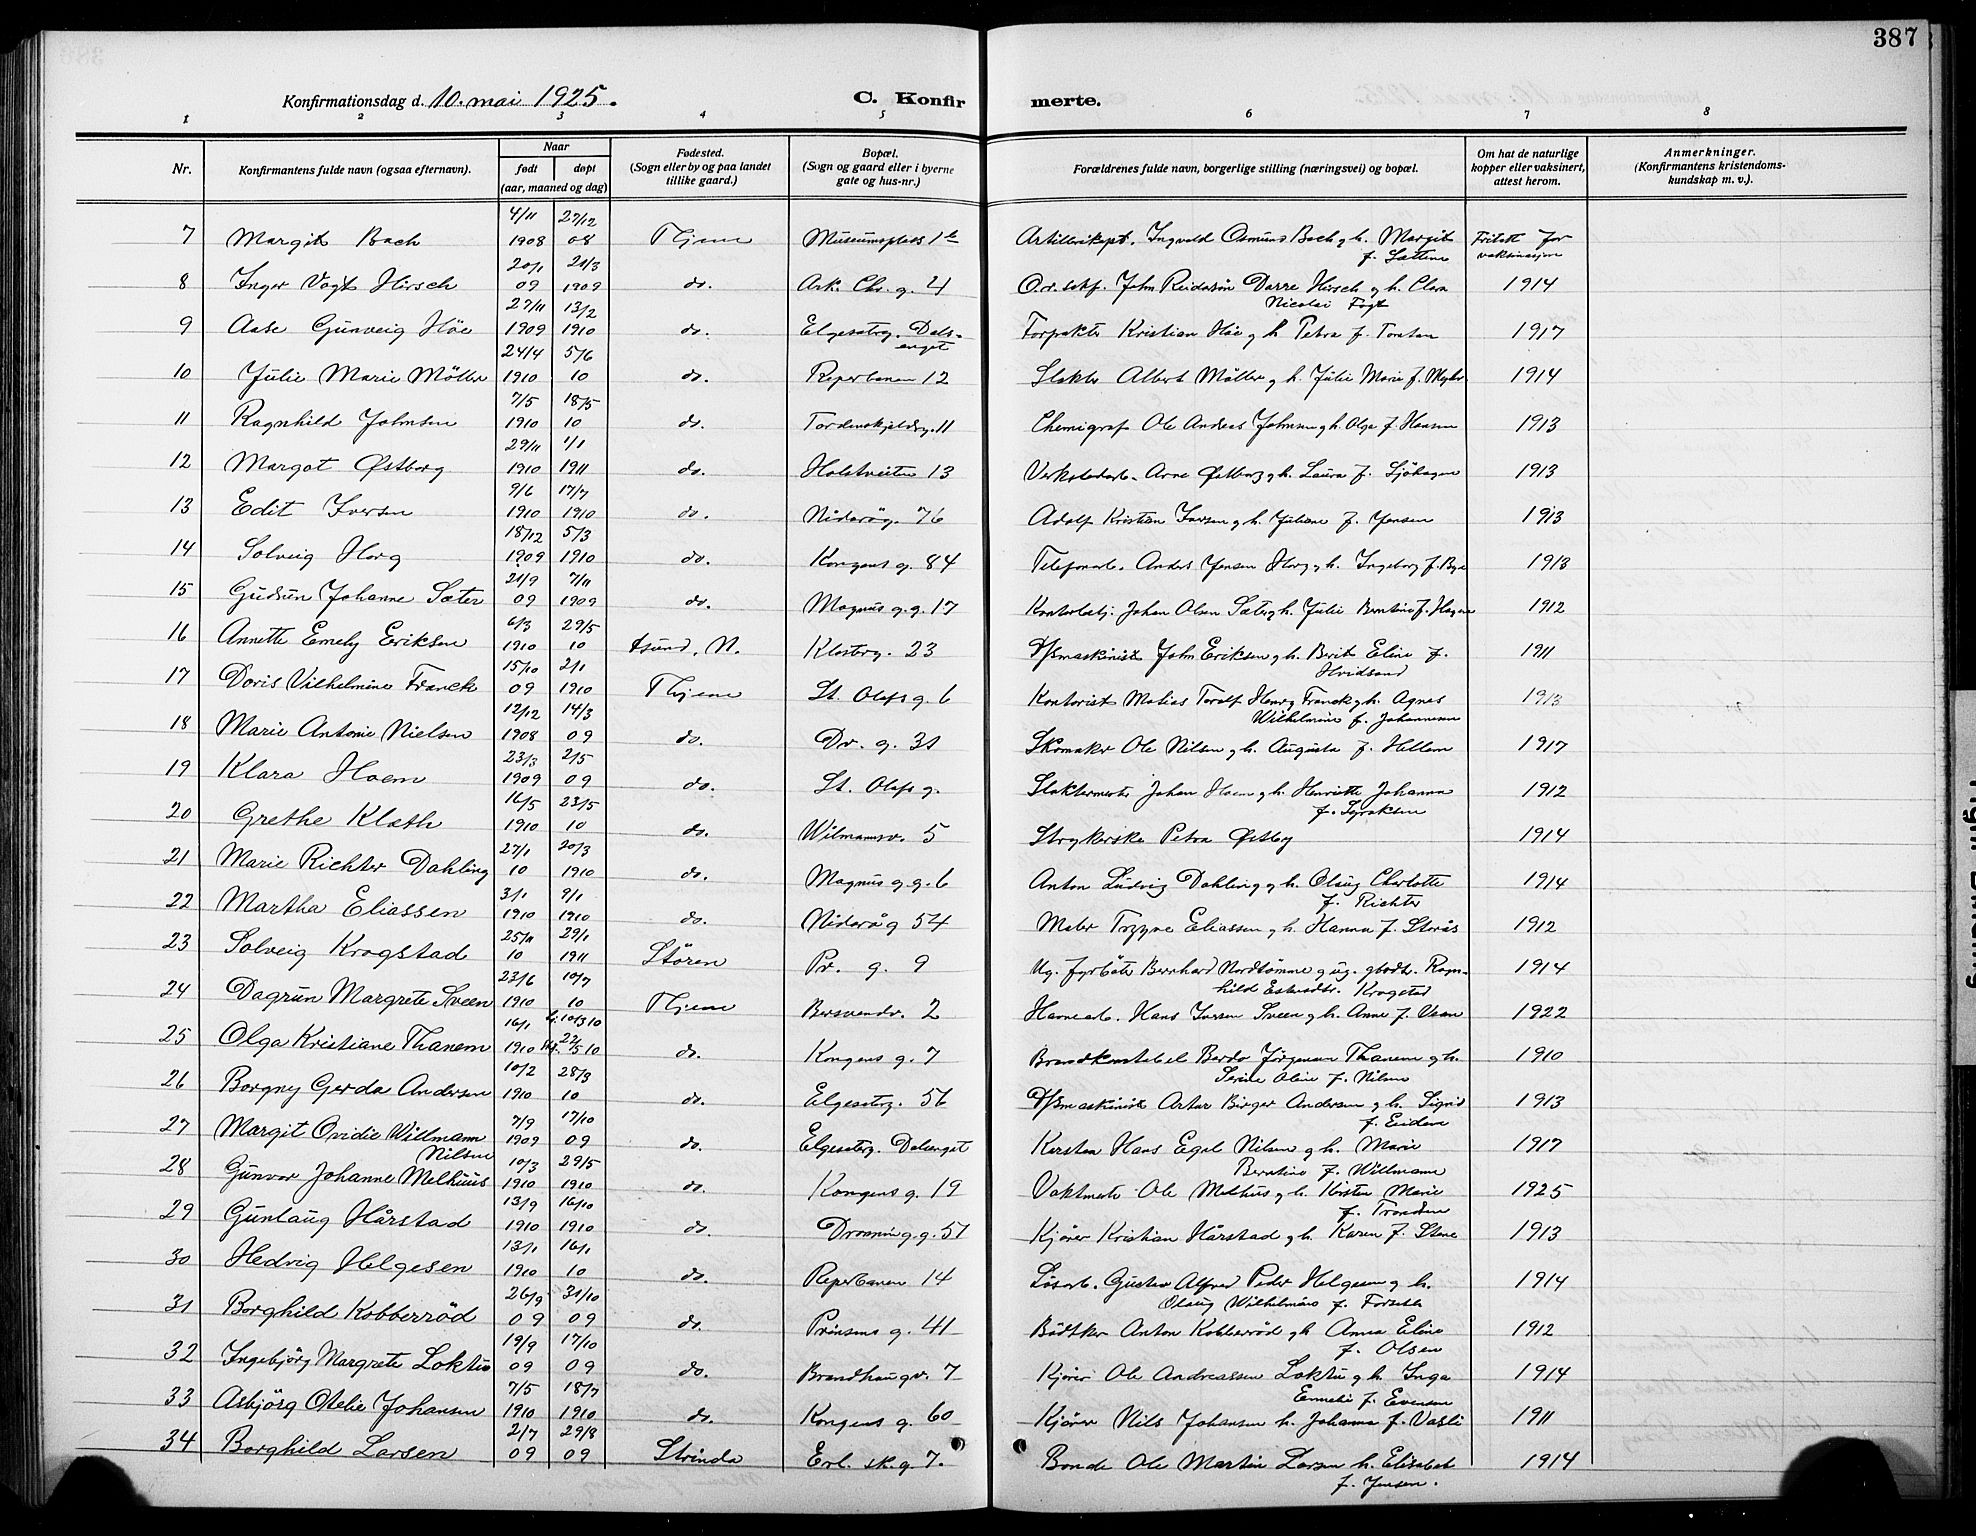 387
Konfirmationsdag d. 10. mai 1925.
C. Konfirmerte.
1 2 3 4 5 6 7 8
Nr. Konfirmantens fulde navn (ogsaa efternavn). Naar født døpt (aar, maaned og dag) Fødested. (Sogn eller by og paa landet tillike gaard.) Bopæl. (Sogn og gaard eller i byerne gate og hus-nr.) Forældrenes fulde navn, borgerlige stilling (næringsvei) og bopæl. Om hat de naturlige kopper eller vaksinert, attest herom. Anmerkninger. (Konfirmantens kristendomskundskap m. v.).
7 Margit Bach 4/11 1908 27/12 08 Thjem Museumsplads 1b Artillerikapt. Ingvald Osmund Bach g. h. Margit f. Sættem Fritatt for vaksinasjon
8 Inger Vogt Hirsch 20/1 09 21/3 1909 do. Ark. Chr. g. 4 O.r. sakf. John Reidarson Darre Hirsch g h. Clara Nicolai Fogt 1914
9 Aase Gunveig Höe 27/11 1909 13/2 1910 do. Elgesetrg. Dalsenget Forpakter Kristian Höe g h Petra f. 1917
10 Julie Marie Möller 24/4 1910 5/6 10 do. Reperbanen 12 Slakter Albert Möller g h. Julie Marie f. 1914
11 Ragnhild Johnsen 7/5 1910 18/5 10 do. Tordenskjoldsg. 11 Chemigraf Ole Andreas Johnsen g h. Olga f. Hansen 1913
12 Margot Østborg 29/11 1910 1/1 1911 do. Holstveiten 13 Verkstedarb. Arne Østborg g h. Laura f. Sjöhagen 1913
13 Edit Iversen 9/6 1910 17/7 1910 do. Nidarög. 76 Adolf Kristian Iversen g h. Juliane f. Jensen 1913
14 Solveig Horg 18/12 1909 5/3 1910 do. Kongens g. 84 Telefonarb. Anders Jensen Horg g h. Ingeborg f. Bye 1913
15 Gudrun Johanne Sæter 21/9 09 7/11 1909 do. Magnus g. g. 17 Kontorbetj. Johan Olsen Sæter g h. Julie Berntine f. 1912
16 Annette Emely Eriksen 6/3 1910 29/5 10 Asund, N. Klosterg. 23 D/Smaskinist John Eriksen g h. Berit Eline f. Hvidsand 1911
17 Doris Vilhelmine Franck 15/10 09 2/1 1910 Thjem St. Olafs g. 6 Kontorist Matias Toralf Henry Franck g h. Agnes Wilhelmine f. Johannesen 1913
18 Marie Antonie Nielsen 12/12 1908 14/3 09 do. Dr. g. 31 Skomaker Ole Nilsen g h. Augusta f. Hellem 1917
19 Klara Hoem 23/3 1909 2/5 09 do. St. Olafs g. Slaktermester Johan Hoem g h. Henriette Johanna f. Syraksen 1912
20 Grethe Klæth 16/5 1910 23/5 10 do. Wilmannsv. 5 Strykerske Petra Østby 1914
21 Marie Richter Dahling 27/1 10 20/3 1910 do. Magnus g. g. 6 Anton Ludvig Dahling g h. Olaug Charlotte f. Richter 1914
22 Martha Eliassen 3/1 1910 9/1 1910 do. Nidarög 54 Maler Trygve Eliassen g h. Hanna f. Storås 1912
23 Solveig Krogstad 25/11 10 29/1 1911 Stören Pr. g. 9 Ug. fyrböter Bernhard Nordtömme g ug. gbodt. Ragnhild Estensdtr. Krogstad 1914
24 Dagrun Margrete Sveen 23/6 1910 10/7 10 Thjem Bersvendv. 2 Havnearb. Hans Iversen Sveen g h. Anne f. Veen 1922
25 Olga Kristiane Thanem 16/1 1910 hj. 10/3 10 22/5 10 do. Kongens g. 7 Brandkonstabel Bardo Jörgensen Thanem g h. Serine Oline f. Nilsen 1910
26 Borgny Gerda Andersen 10/2 1910 28/3 10 do. Elgesetrg. 56 D/Smaskinist Artur Birger Andersen g h. Sigrid f. Eidem 1913
27 Margit Ovidie Willmann Nilsen 7/9 1909 17/10 09 do. Elgesetrg. Dalsenget Kasten Hans Egel Nilsen g h. Marie Berntine f. Willmann 1917
28 Gunvor Johanne Melhuus 10/3 1910 29/5 1910 do. Kongens g. 19 Vaktmester Ole Melhus g h. Kirsten Marie f. Trondsen 1925
29 Gunlaug Hårstad 13/9 1910 16/10 1910 do. Dronning g. g. 51 Kjörer Kristian Hårstad g h. Karen f. Stene 1913
30 Hedvig Helgesen 13/1 1910 16/1 10 do. Reperbanen 14 Lösarb. Gustav Alfred Peder Helgesen g h. Olaug Wilhelmine f. Forseth 1914
31 Borghild Kobberröd 26/9 09 31/10 09 do. Prinsens g. 41 Bödtker Anton Kobberröd g h Anna Eline f. Olsen 1912
32 Ingebjörg Margrete Loktu 19/9 09 17/10 09 do. Brandhaugv. 7 Kjörer Ole Andreassen Loktu g h. Inga Ennelie f. Evensen 1914
33 Asbjörg Otelie Johansen 7/5 1910 18/7 1910 do. Kongens g. 60 Kjörer Nils Johansen h. Johanna f. Vasli 1911
34 Borghild Larsen 2/7 09 29/8 09 Strinda Erl. sk. g. 7. Bonde Ole Martin Larsen h. Elisabet f. Jensen. 1914